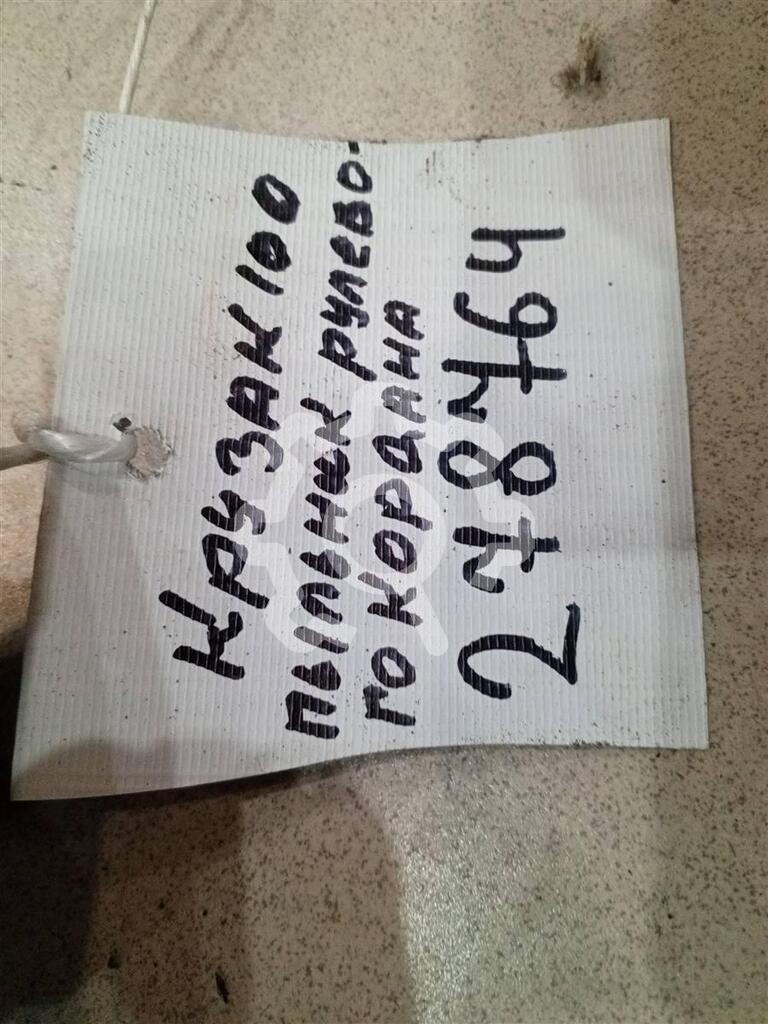 Крузак 100
пыльник рулево-
го кордана
278764